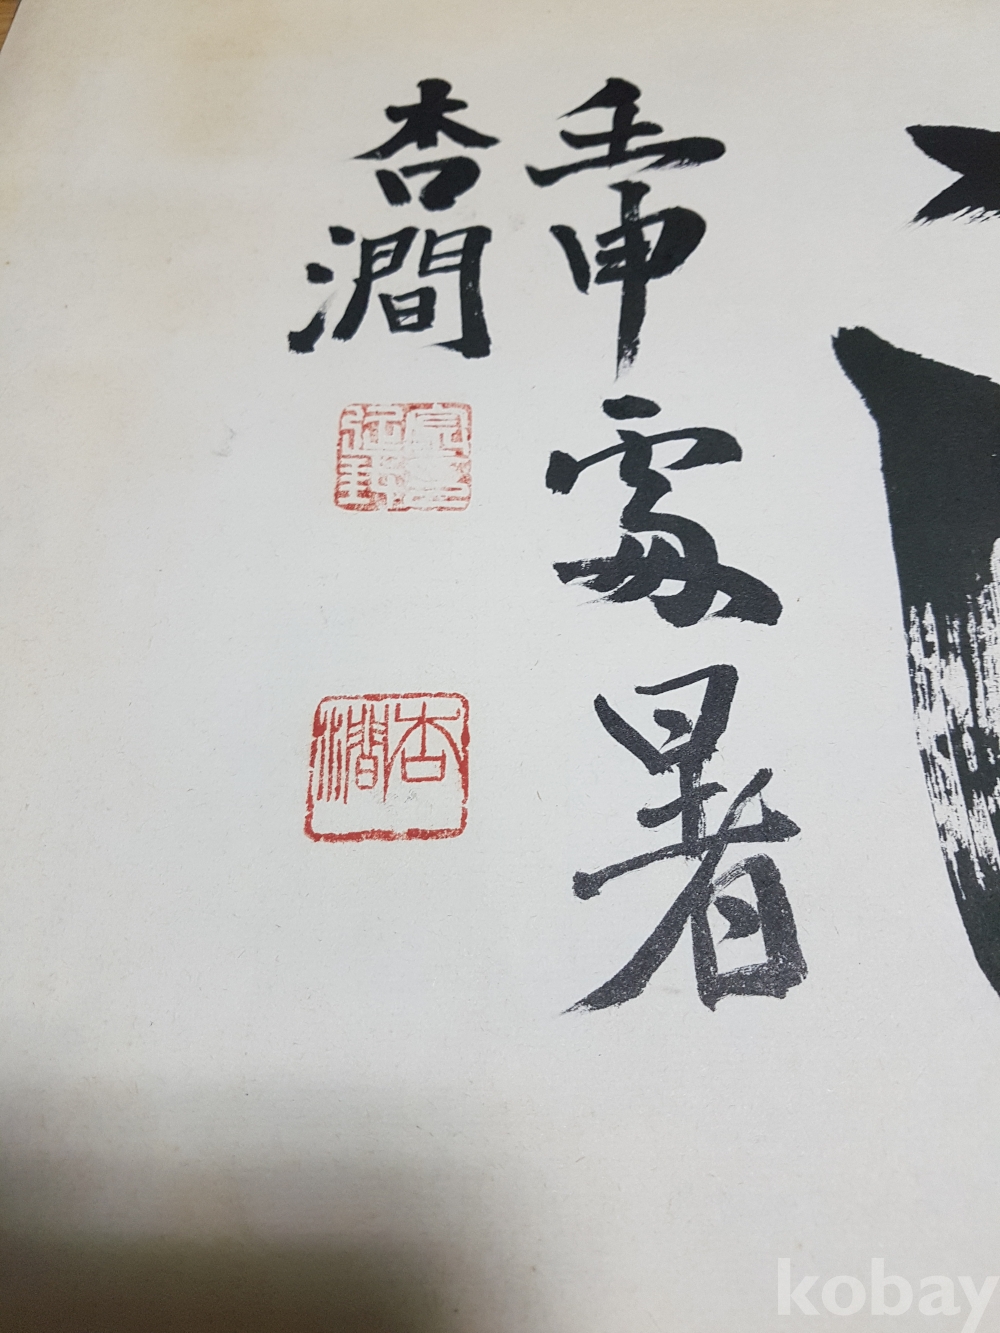 壬申處暑
杏澗
杏澗
kobay